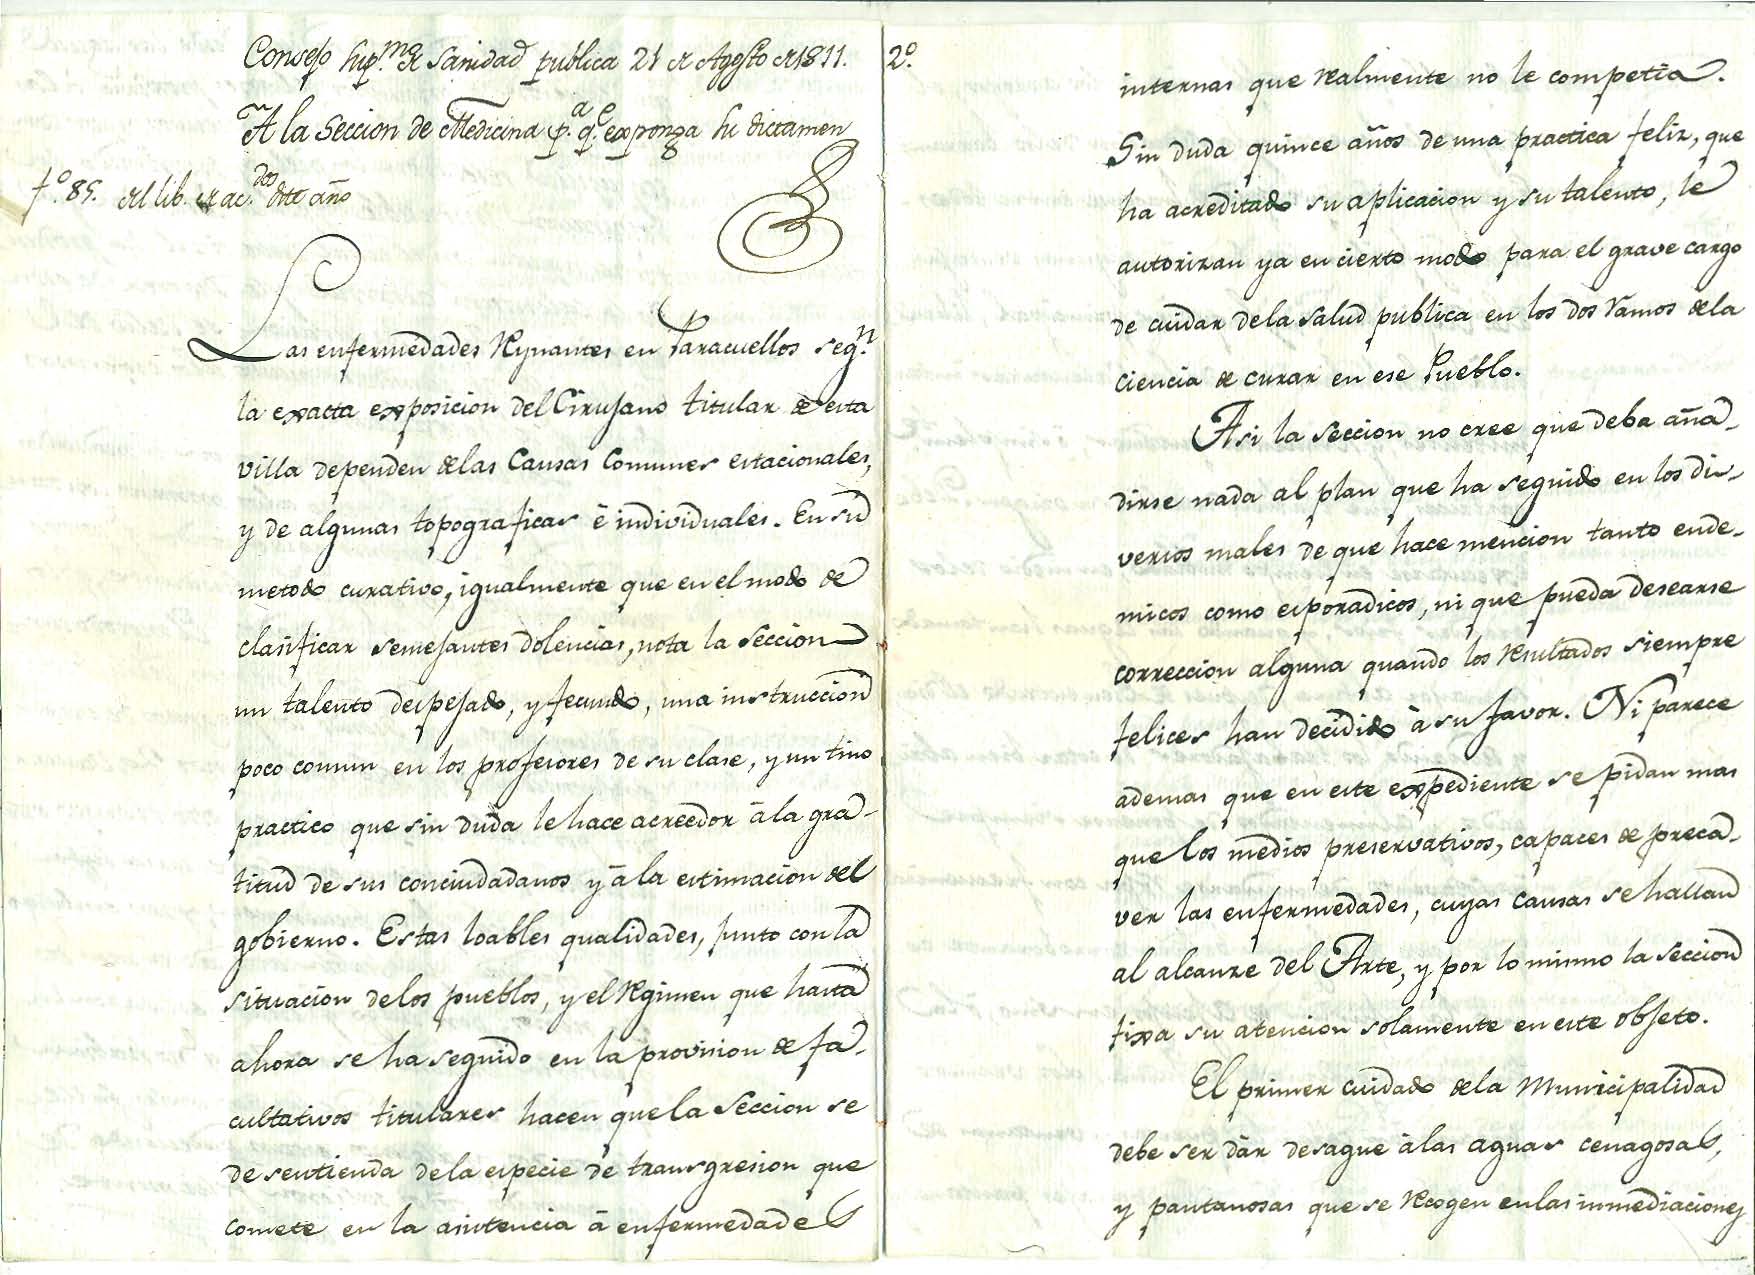 Consejo Sup.mo de Sanidad publica 21 de Agosto de 1811.
A la Seccion de Medicina p.a q.e exponga su dictamen
f.o 85. del lib. de ac.dos dste año
Las enfermedades Reynantes en Paracuellos seg.n
la exacta exposicion del Cirujano titular de esta
villa dependen de las Causas Comunes estacionales,
y de algunas topograficas è individuales. En su
metodo curativo, igualmente que en el modo de
clasificar semejantes dolencias, nota la Seccion
un talento despejado, y fecundo, una instruccion
poco comun en los profesores de su clase, y un tino
practico que sin duda le hace acreedor à la gra-
titud de sus conciudadanos y à la estimacion del
gobierno. Estas loables qualidades, junto con la
situacion de los pueblos, y el Regimen que hasta
ahora se ha seguido en la provision de fa-
cultativos titulares hacen que la Seccion se
desentienda de la especie de transgresion que
comete en la asistencia à enfermedades
2.o
internas que realmente no le competia.
Sin duda quince años de una practica feliz, que
ha acreditado su aplicacion y su talento, le
autorizan ya en cierto modo para el grave cargo
de cuidar de la salud publica en los dos ramos de la
ciencia de curar en ese Pueblo.
Asi la Seccion no cree que deba aña-
dirse nada al plan que ha seguido en los di-
versos males de que hace mencion tanto ende-
micos como esporadicos, ni que pueda desearse
correccion alguna quando los resultados siempre
felices han decidido à su favor. Ni parece
ademas que en este expediente se pidan mas
que los medios preservativos, capaces de preca-
ver las enfermedades, cuyas causas se hallan
al alcanze del Arte, y por lo mismo la Seccion
fixa su atencion solamente en este objeto.
El primer cuidado de la Municipalidad
debe ser dàr desague à las aguas cenagosas,
y pantanosas que se recogen en las inmediaciones